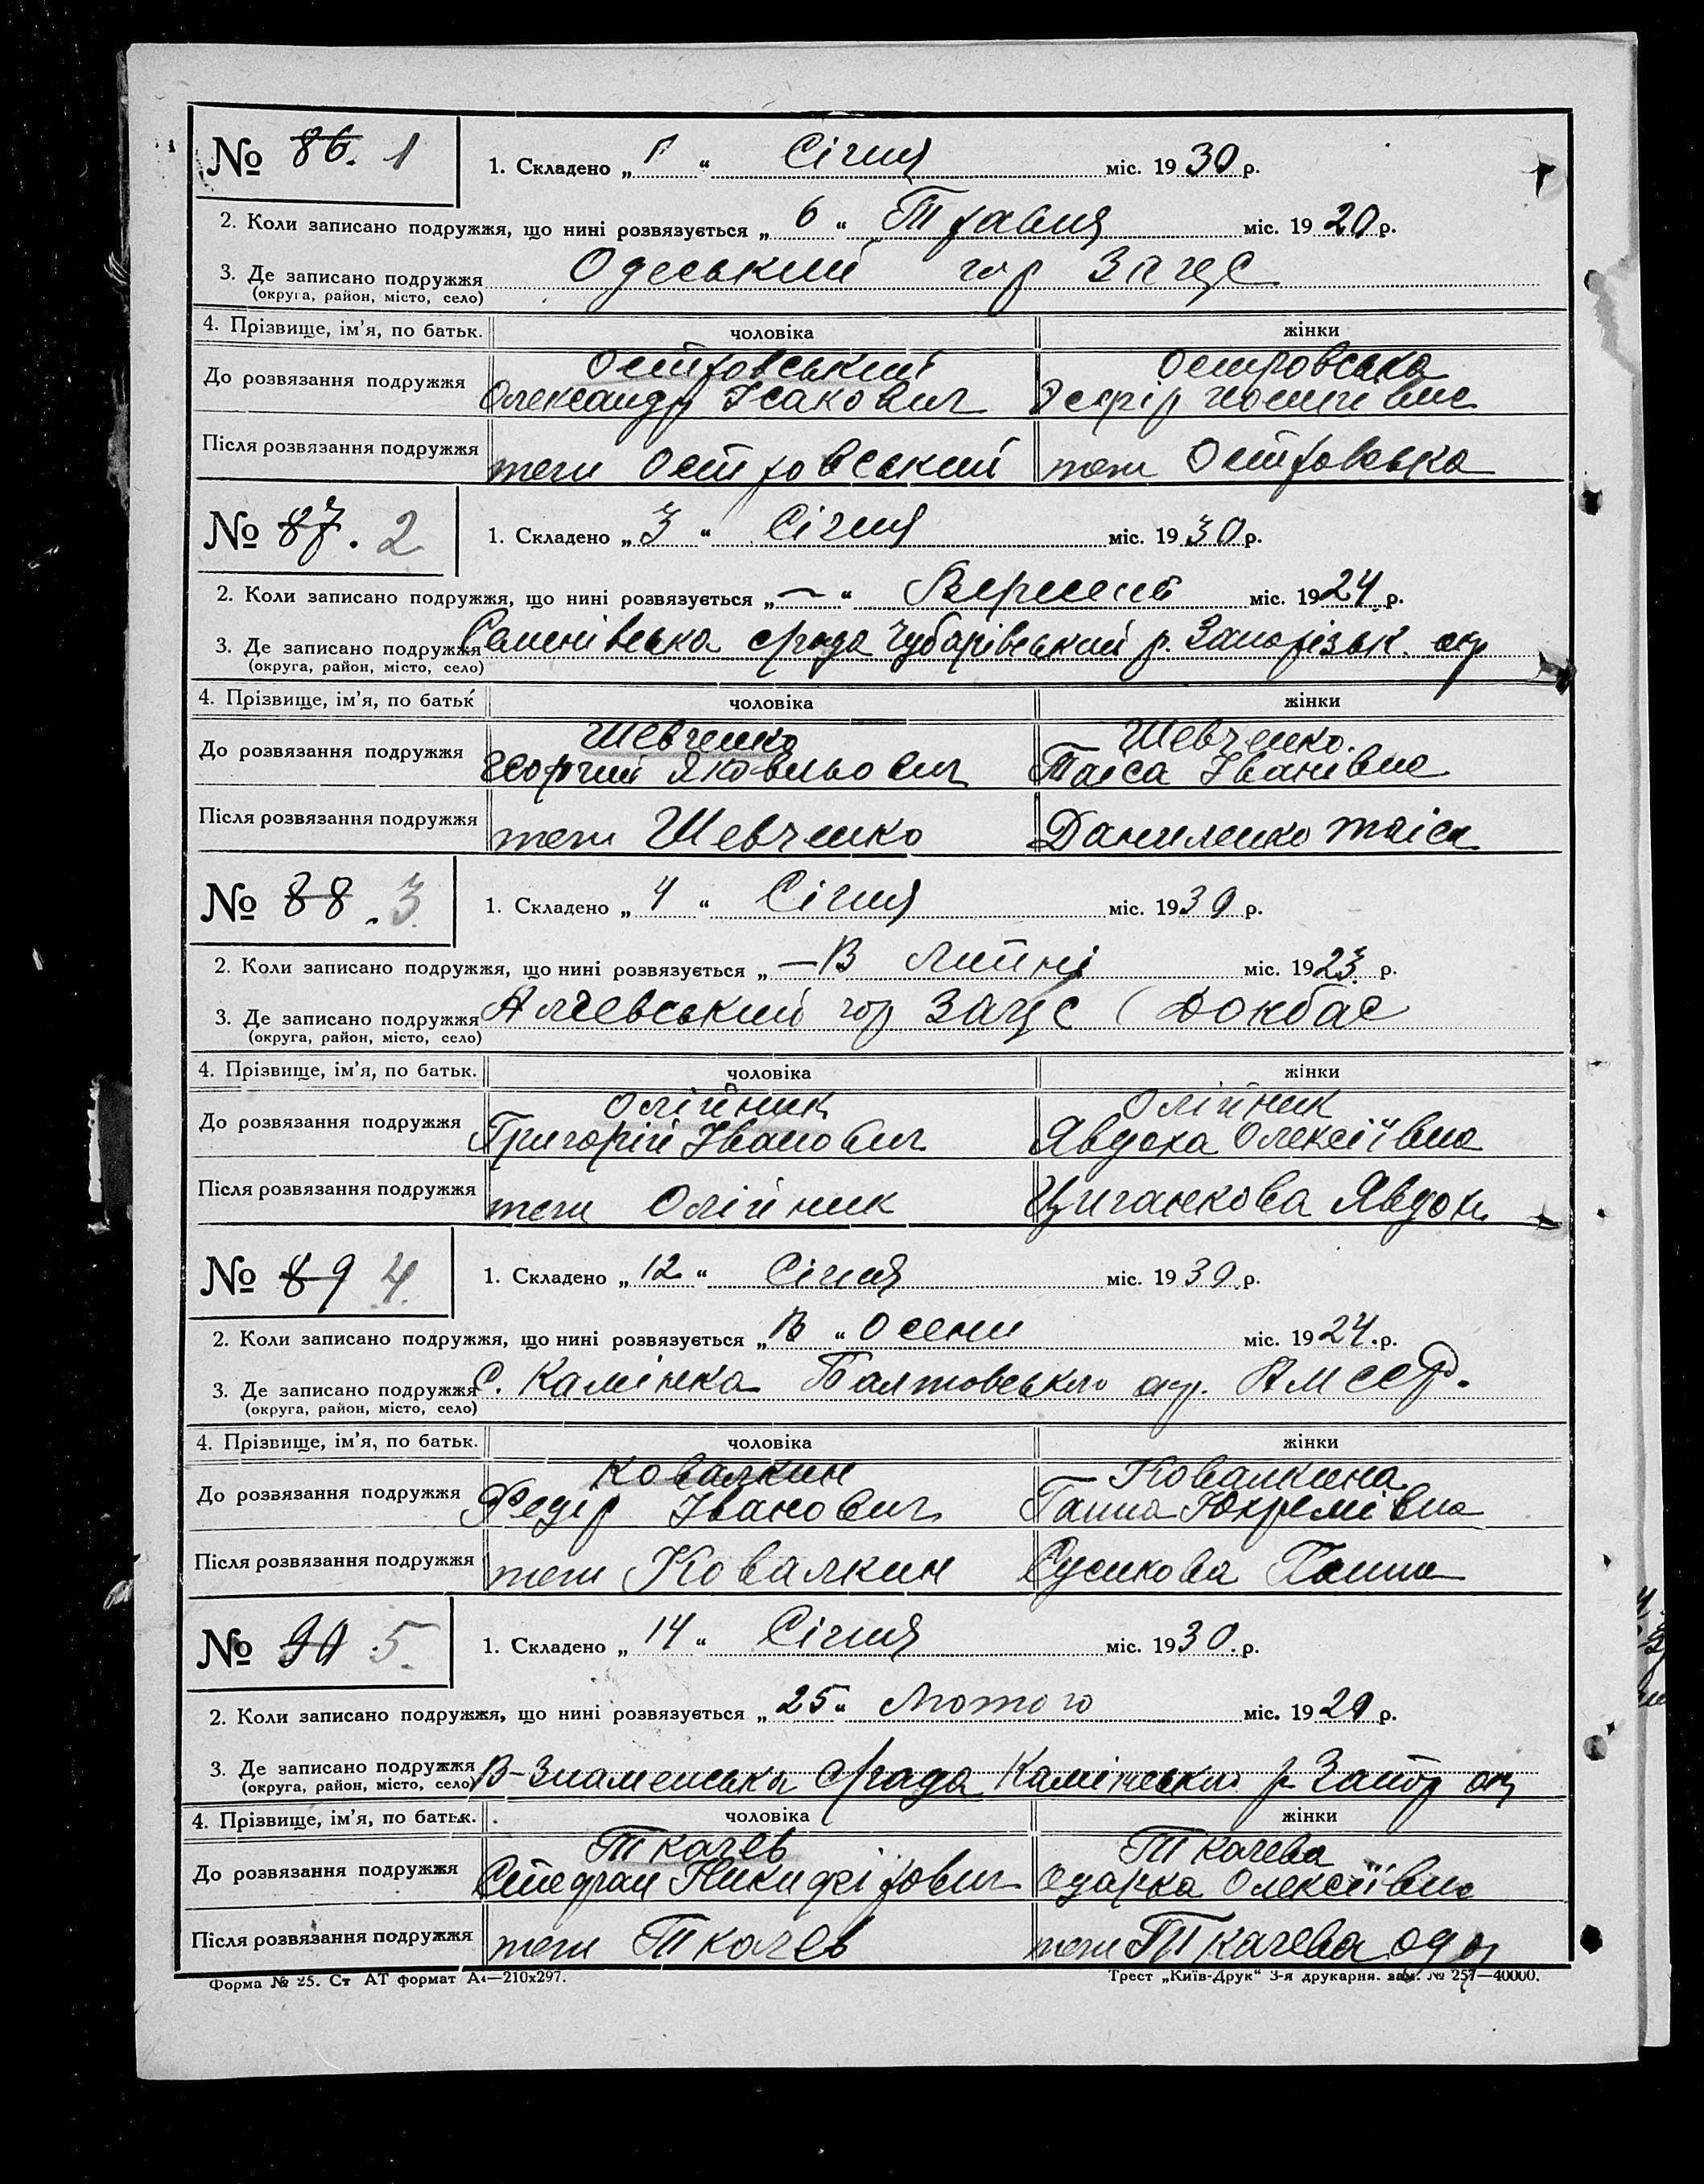 № 86. 1
1. Складено „ 1 “ Січня міс. 1930 р.
2. Коли записано подружжя, що нині розвязується „ 6 “ Травня міс. 1920 р.
3. Де записано подружжя Одеський гор ЗАГС
(округа, район, місто, село)
4. Прізвище, ім’я, по батьк. чоловіка жінки
Островський Островська
До розвязання подружжя Олександр Ісакович Эсфір
Після розвязання подружжя теж Островський теж Островська
№ 87. 2
1. Складено „ 3 “ Січня міс. 1930 р.
2. Коли записано подружжя, що нині розвязується „ — “ Вересень міс. 1924 р.
3. Де записано подружжя Семенівська с/рада Чубарівський р. Запорізьк. окр
(округа, район, місто, село)
4. Прізвище, ім’я, по батьк чоловіка жінки
Шевченко Шевченко.
До розвязання подружжя Георгий Яковльович Таїса Іванівна
Після розвязання подружжя теж Шевченко Даниленко Таіса
№ 88. 3
1. Складено „ 4 “ Січня міс. 1930 р.
2. Коли записано подружжя, що нині розвязується „ — В Литні міс. 1923 р.
3. Де записано подружжя Алчевський гор ЗАГС (Донбас
(округа, район, місто, село)
4. Прізвище, ім’я, по батьк. чоловіка жінки
Олійник Олійник
До розвязання подружжя Григорій Іванович Явдоха Олексіївна
Після розвязання подружжя теж Олійник Циганкова Явдох
№ 89 4.
1. Складено „ 12 “ Січня міс. 1930 р.
2. Коли записано подружжя, що нині розвязується „ В “ Осени міс. 1924. р.
3. Де записано подружжя С. Камінка Балтовського окр. АМССР.
(округа, район, місто, село)
4. Прізвище, ім’я, по батьк. чоловіка жінки
Ковалкин Ковалкина
До розвязання подружжя Федір Іванович Ганна Юхремівна
Після розвязання подружжя теж Ковалкин Ганна
№ 90 5.
1. Складено „ 14 “ Січня міс. 1930. р.
2. Коли записано подружжя, що нині розвязується „ 25 “ Лютого міс. 1920 р.
3. Де записано подружжя В-Знаменська с/рада Камінського р Запор окр
(округа, район, місто, село)
4. Прізвище, ім’я, по батьк. чоловіка жінки
Ткачев Ткачева
До розвязання подружжя Стефан Никифірович Одарка Олексіївна
Після розвязання подружжя теж Ткачев теж Ткачева Одар
Форма № 25. Ст АТ формат А4—210х297. Трест „Київ-Друк“ 3-я друкарня. зам. № 257—40000.